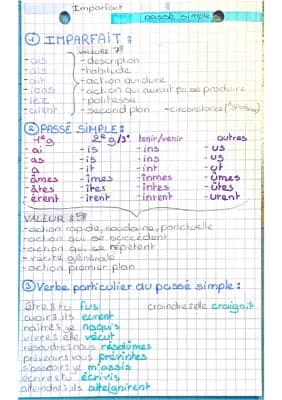 Imparfait
passé simple
① IMPARFAIT :
VALEURS 7
- ais - description
- ais - habitude
- ait - action qui dure
- ions - action qui aurait pu se produire
- iez - politesse
- aient - second plan - circonstance
② PASSÉ SIMPLE :
1er g 2e g/3e tenir/venir autres
- ai - is - ins - us
- as - is - ins - us
- a - it - int - ut
- âmes - îmes - înmes - ûmes
- âtes - îtes - întes - ûtes
- èrent - irent - inrent - urent
VALEUR 5
- action rapide, soudaine, ponctuelle
- action qui se succèdent
- action qui se répètent
- vérité générale
- action premier plan
③ Verbe particulier au passé simple :
être : tu fus craindre : elle craignit
avoir : ils eurent
naître : je naquis
vivre : elle vécut
résoudre : nous résolûmes
prévenir : vous prévintes
s'asseoir : je m'assis
écrire : tu écrivis
atteindre : ils atteignirent